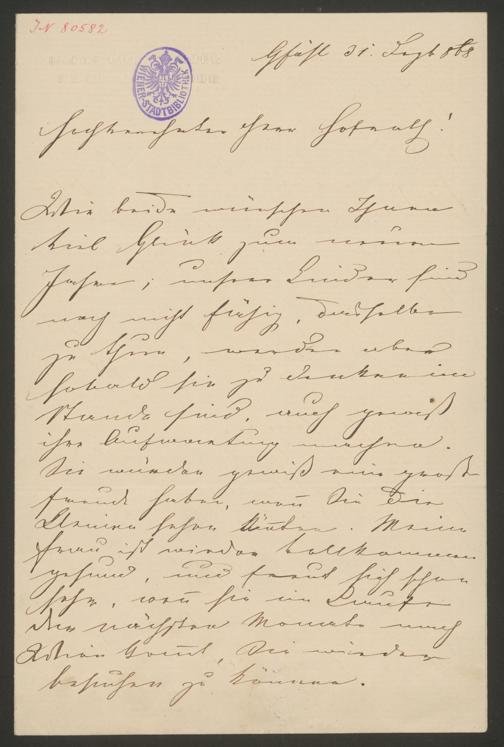 IN 80582
WIENER-STADTBIBLIOTHEK
Gföhl 31. Dezb 868
Hochverehrter Herr Hofrath!
Wir beide wünschen Ihnen
viel Glück zum neuen
Jahre; unsere Kinder sind
noch nicht fähig, dasselbe
zu thun, werden aber
sobald sie zu denken im
Stande sind, auch gewiß
ihre Aufwartung machen.
Sie würden gewiß eine große
Freude haben, wen̄ Sie die
Kleinen sehen könten. Meine
Frau ist wieder vollkommen
gesund, und freut sich schon
sehr, wen̄ sie im Laufe
des nächsten Monats nach
Wien kom̄t, Sie wieder
besuchen zu können.